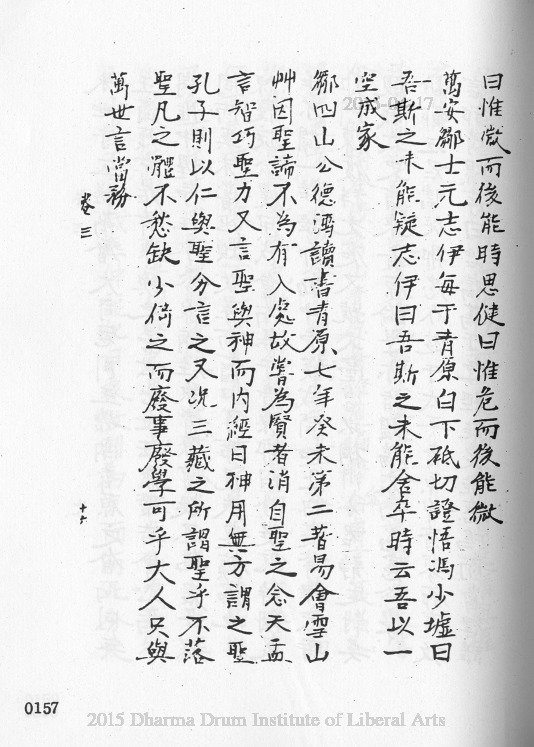 曰惟微而後能時思健曰惟危而後能微
萬安鄒士元志伊每于青原白下砥切證悟馮少墟曰
吾斯之未能疑志伊曰吾斯之未能舍卒時云吾以一
空成家
鄒四山公德溥讀書青原七年癸未第二著易會雪山
艸因聖諦不為有入處故嘗為賢者消自聖之念天孟
言智巧聖力又言聖與神而內經曰神用無方謂之聖
孔子則以仁與聖分言之又況三藏之所謂聖乎不落
聖凡之體不愁缺少倚之而廢事廢學可乎大人只與
萬世言當務
卷三
十六
0157
2015 Dharma Drum Institute of Liberal Arts